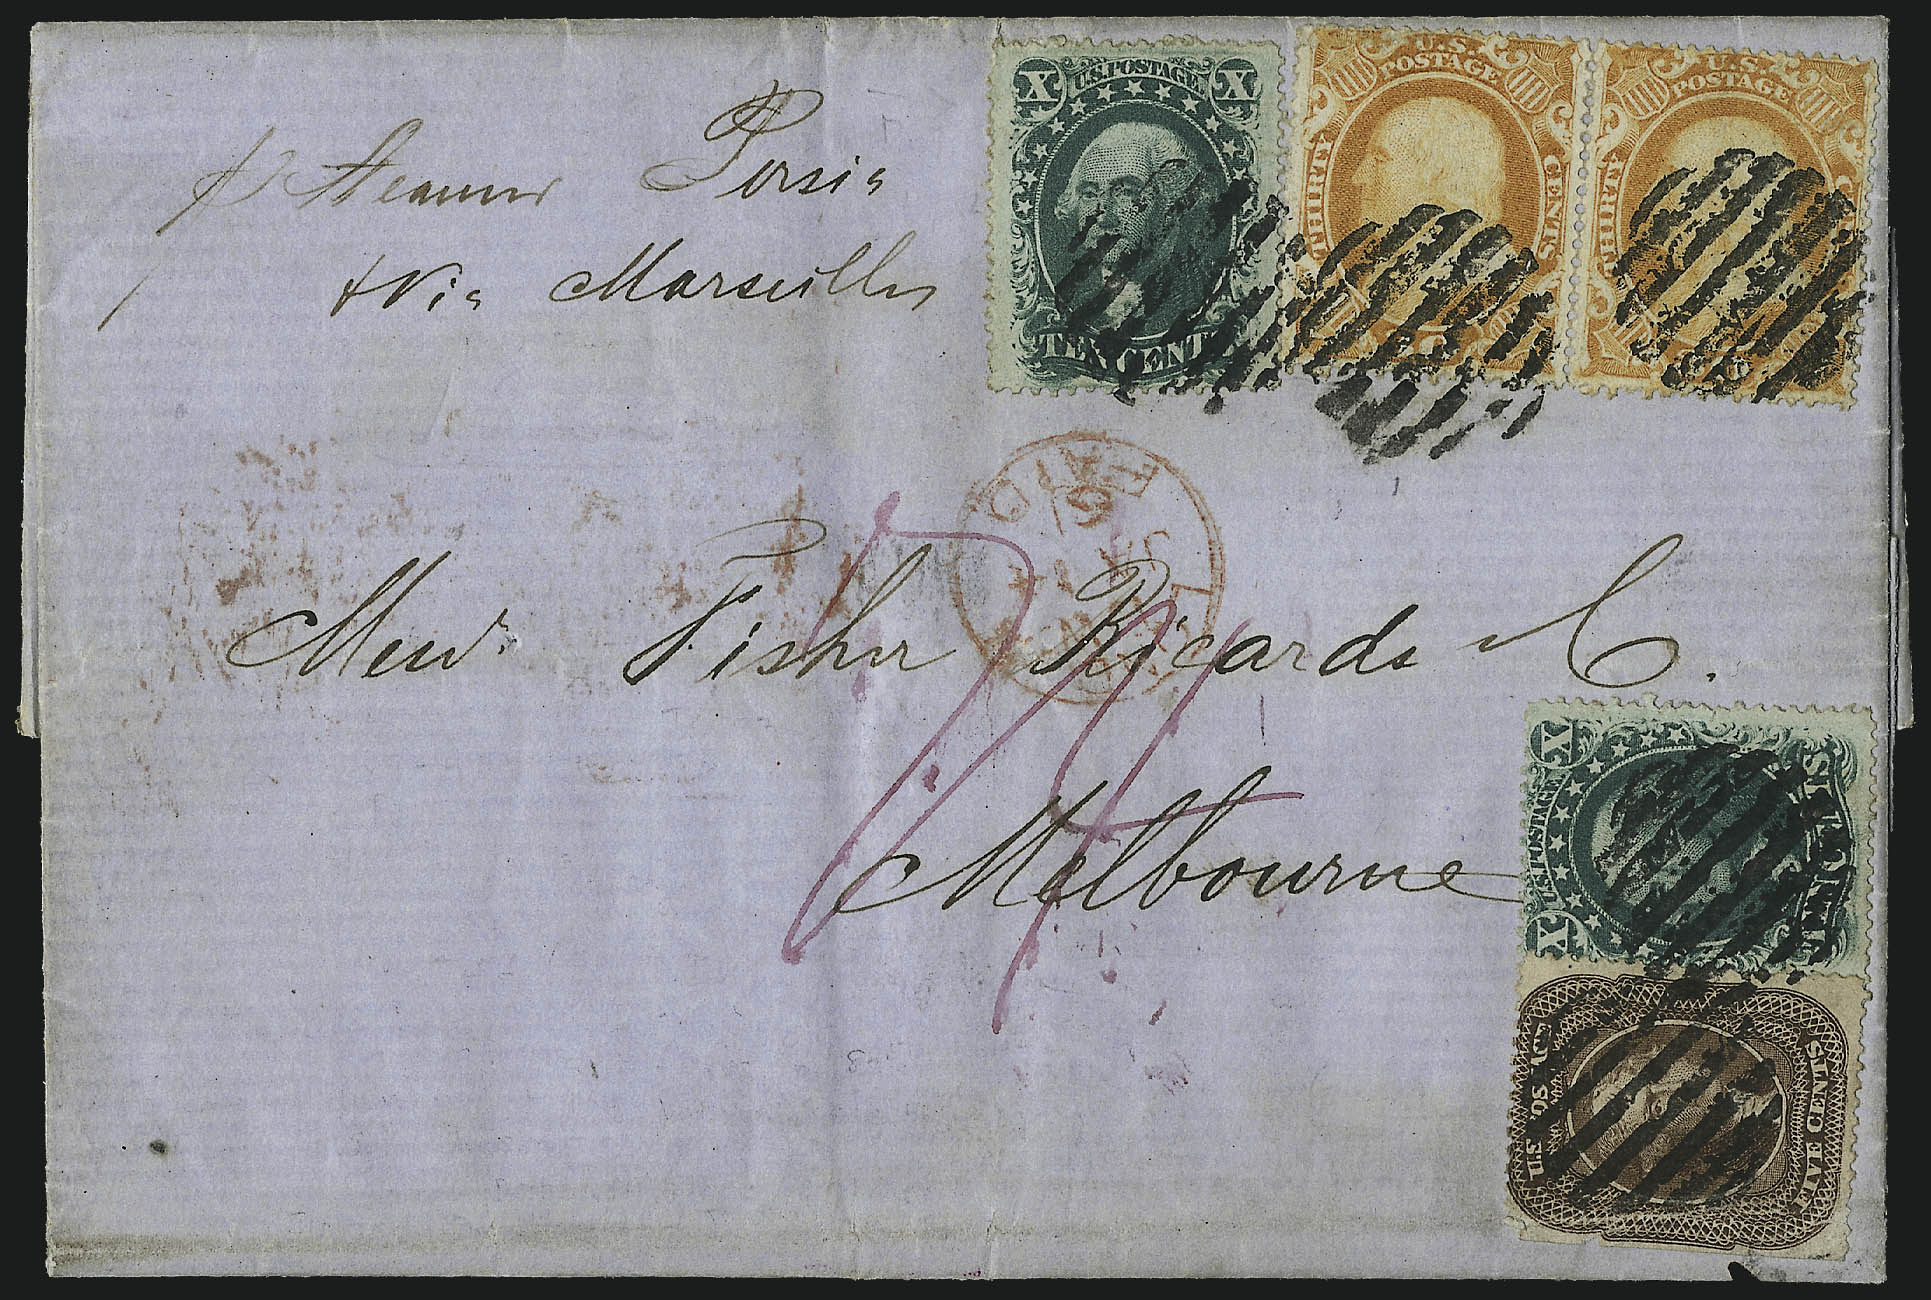 p Steamer Persia
& Via Marseilles
X U.S. POSTAGE X
TEN CENT
U.S. POSTAGE
THIRTY CENTS
U.S. POSTAGE
THIRTY
PAID
Messrs Fisher Ricards & Co.
Melbourne
X U.S. POSTAGE X
TEN CTS
U.S. POSTAGE
FIVE CENTS